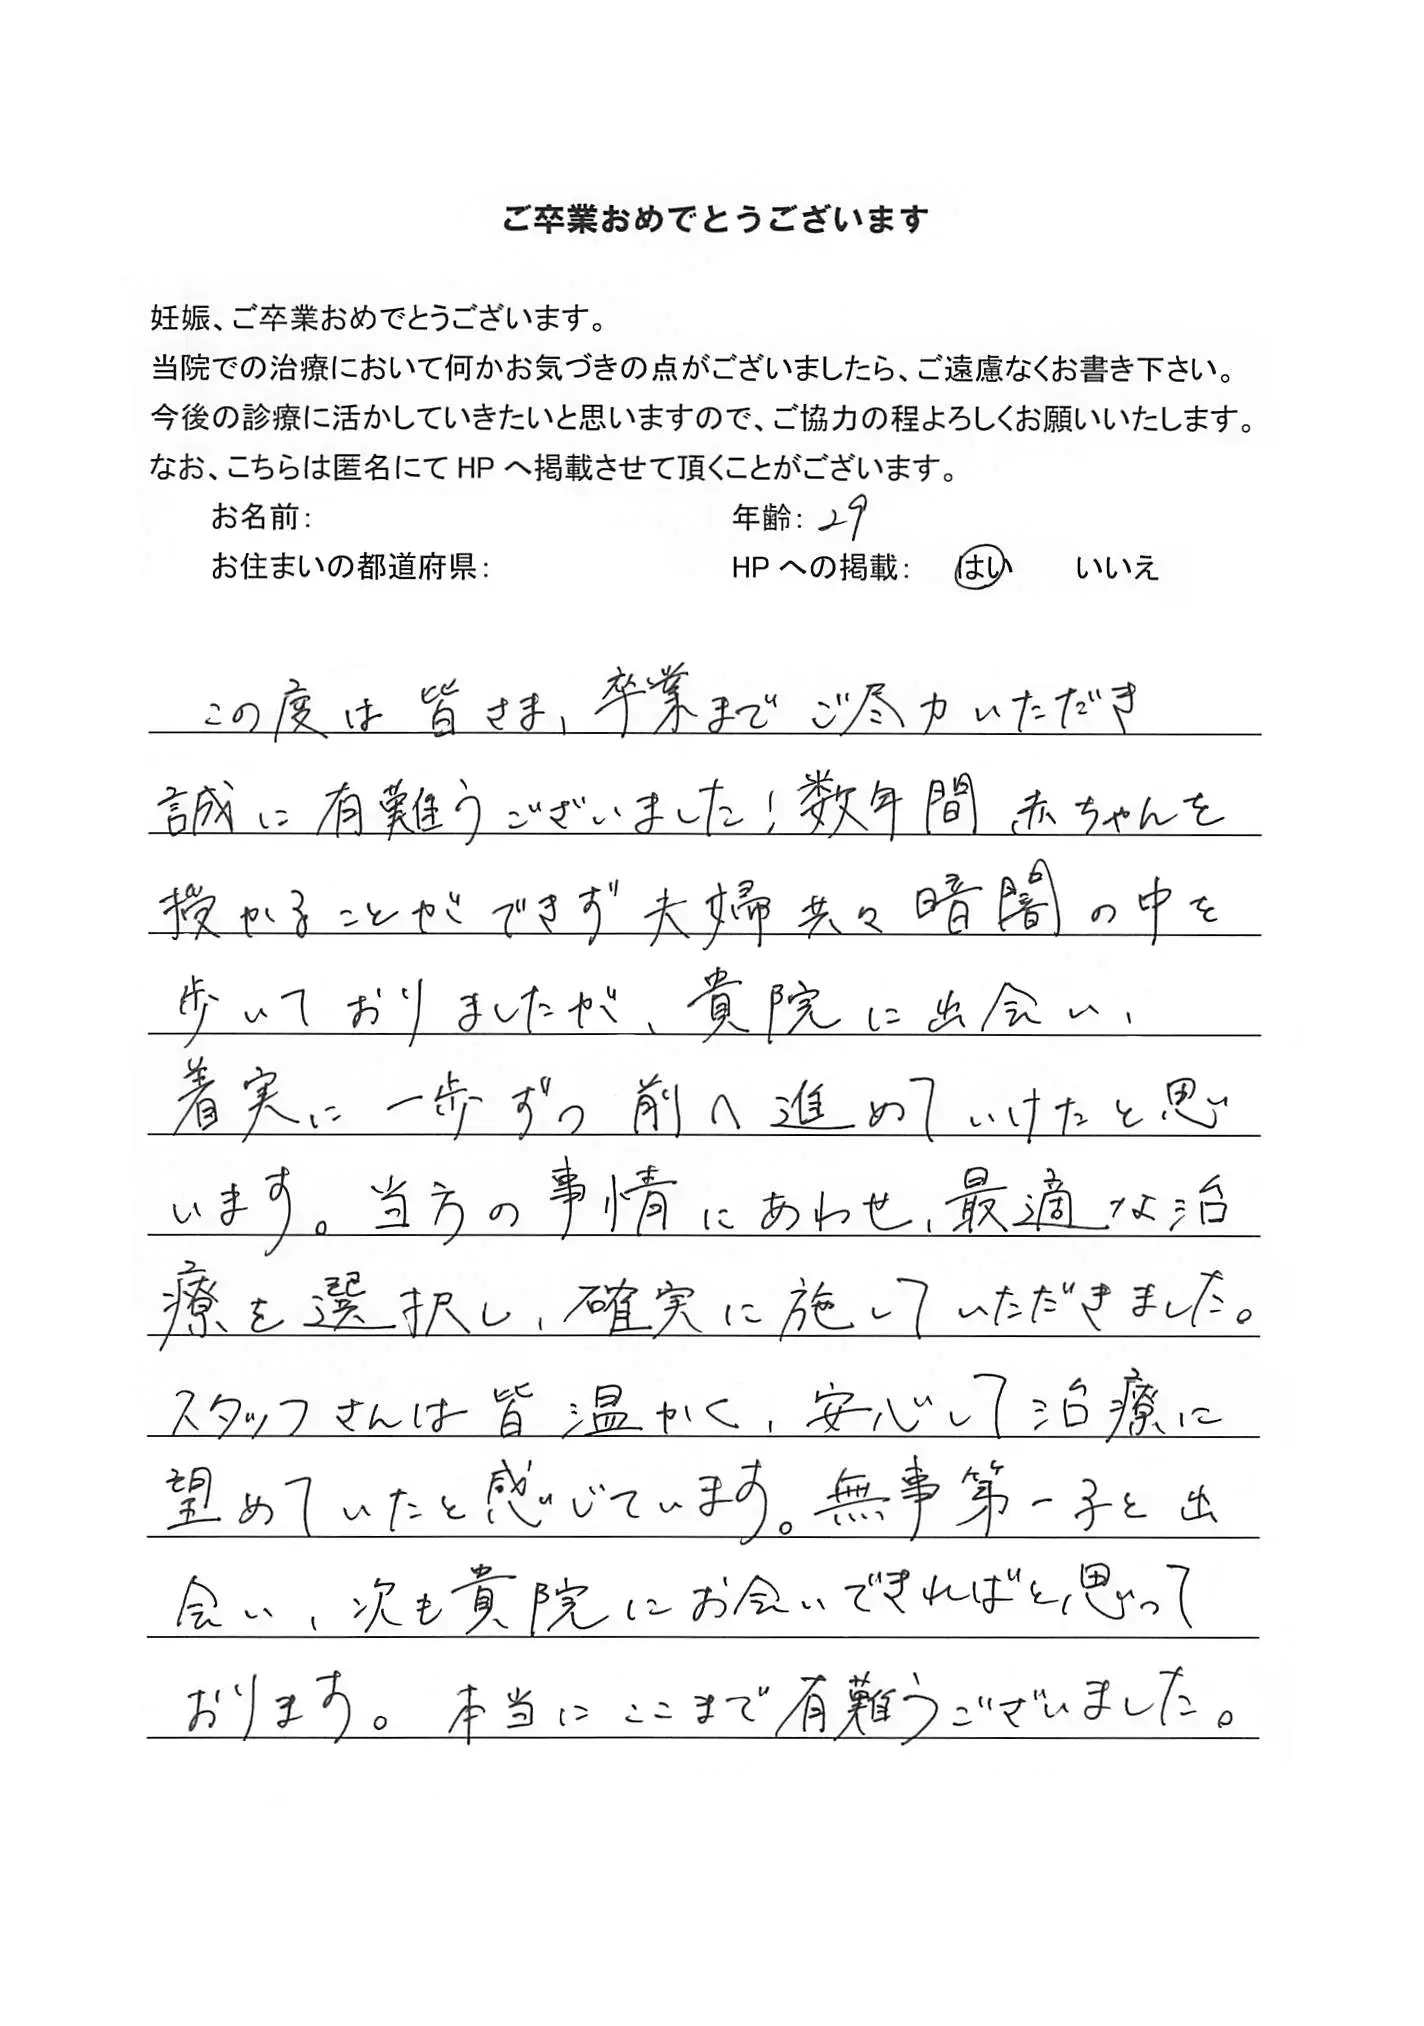 ご卒業おめでとうございます
妊娠、ご卒業おめでとうございます。
当院での治療において何かお気づきの点がございましたら、ご遠慮なくお書き下さい。
今後の診療に活かしていきたいと思いますので、ご協力の程よろしくお願いいたします。
なお、こちらは匿名にて HP へ掲載させて頂くことがございます。
お名前: 年齢: 29
お住まいの都道府県: HP への掲載: はい いいえ
この度は皆さま、卒業までご尽力いただき
誠に有難うございました!数年間赤ちゃんを
授かることができず夫婦共々暗闇の中を
歩いておりましたが、貴院に出会い、
着実に一歩ずつ前へ進めていけたと思
います。当方の事情にあわせ、最適な治
療を選択し、確実に施していただきました。
スタッフさんは皆温かく、安心して治療に
望めていたと感じています。無事第一子と出
会い、次も貴院にお会いできればと思って
おります。本当にここまで有難うございました。